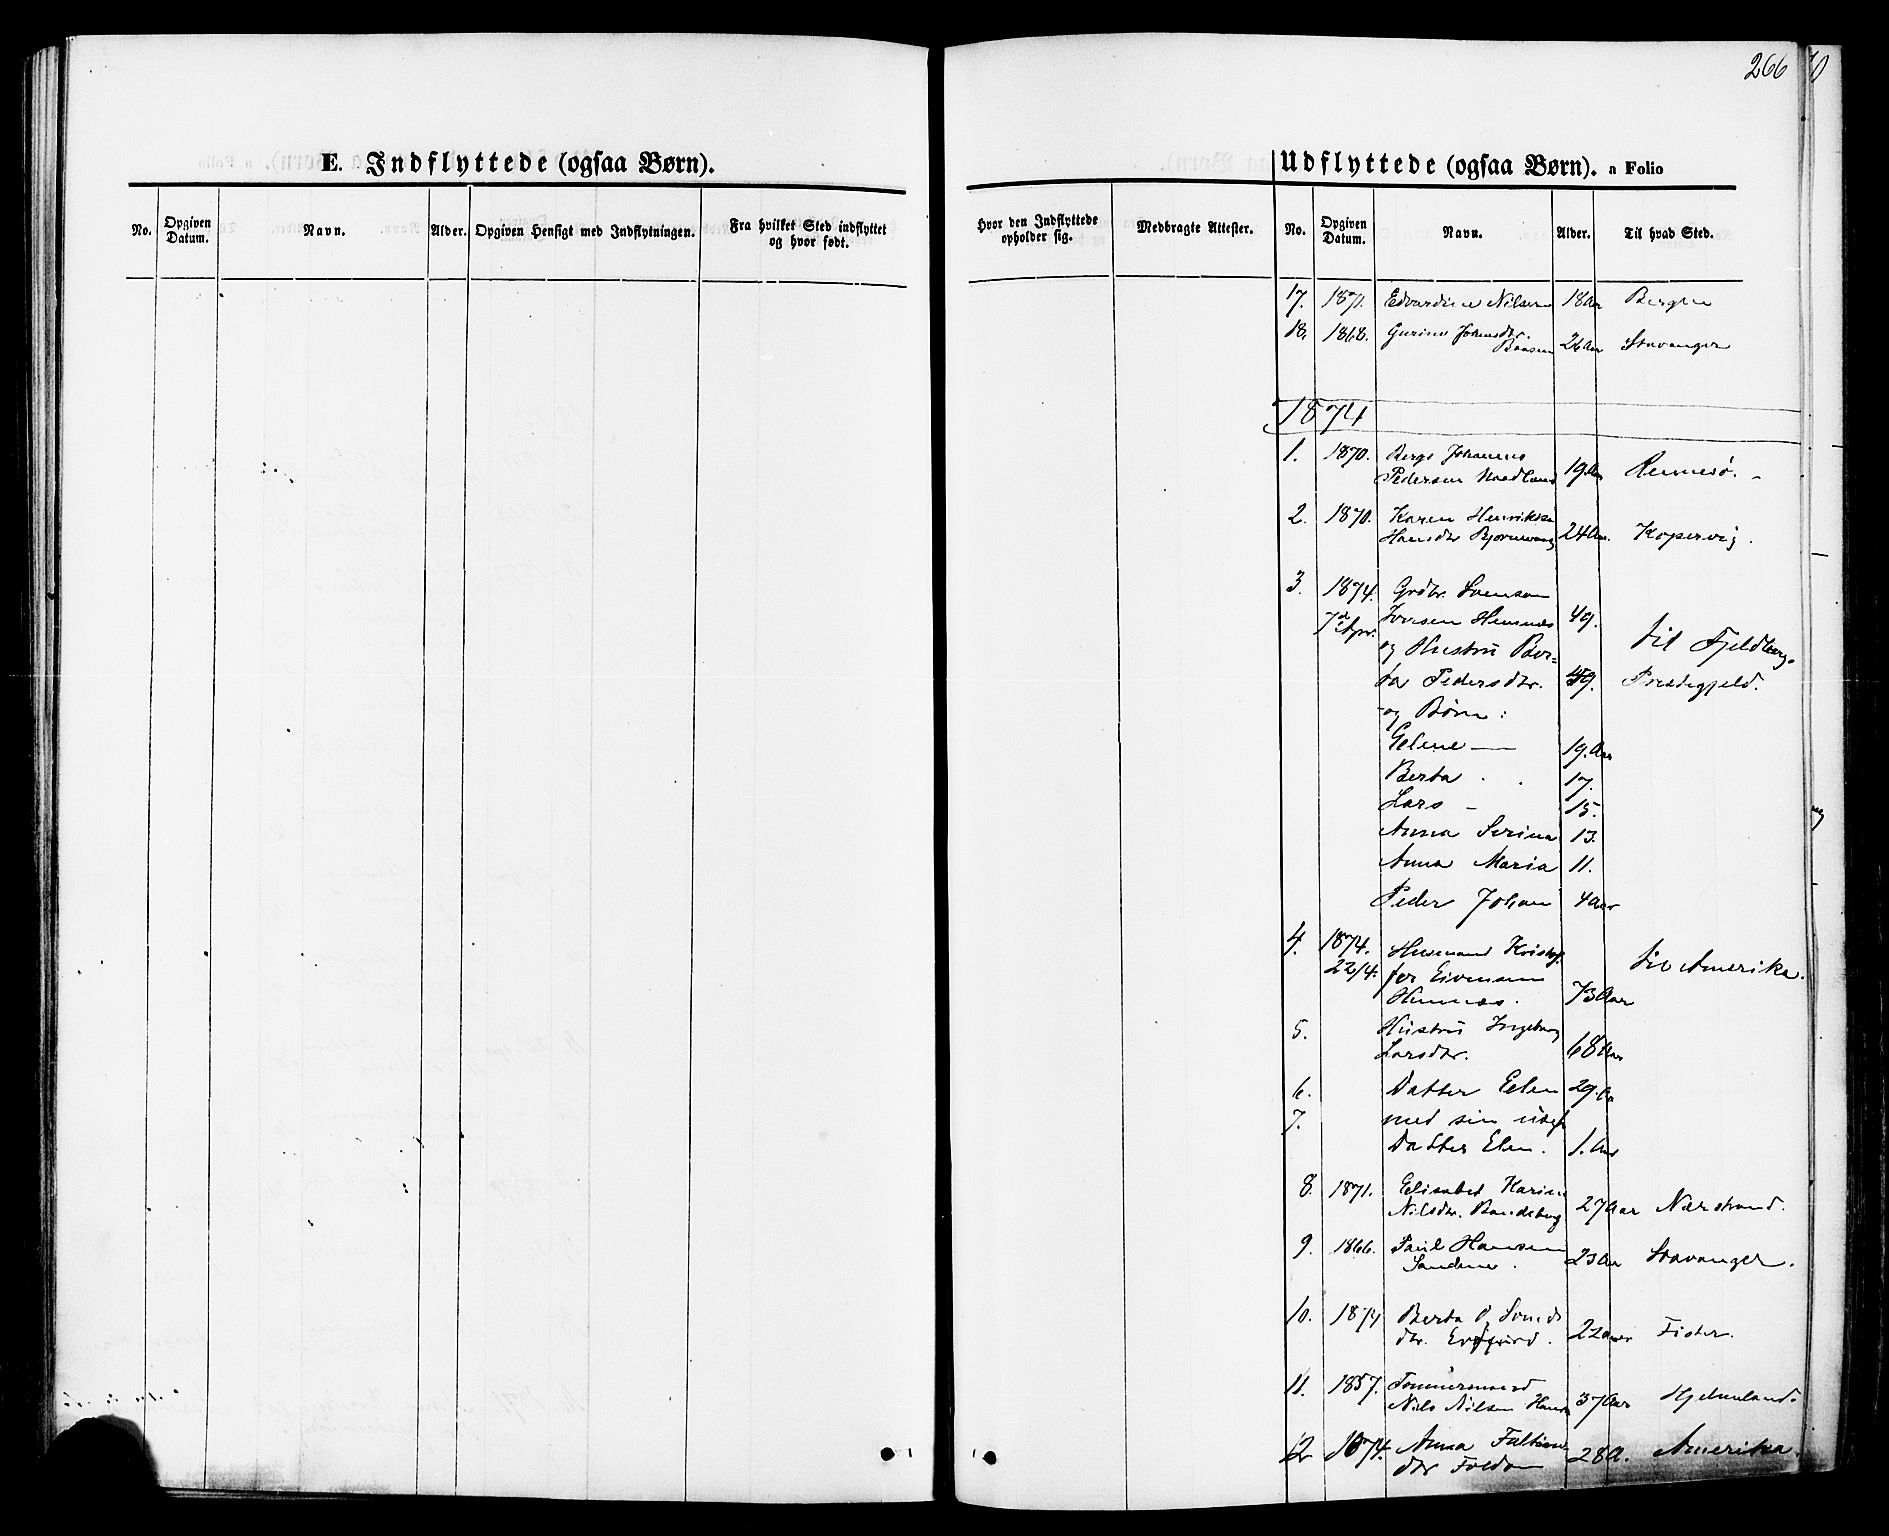 266
E. Indflyttede (ogsaa Børn).
No.
Opgiven Datum.
Navn.
Alder.
Opgiven Hensigt med Indflytningen.
Fra hvilket Sted indflyttet
og hvor født.
Hvor den Indflyttede
opholder sig.
Medbragte Attester.
Udflyttede (ogsaa Børn). a Folio
No.
Opgiven Datum.
Navn.
Alder.
Til hvad Sted.
17. 1871. Edvardine Nilsen 18 Aar Bergen
18. 1868. Gurine Johnsdtr.
26 Aar Stavanger
1874
1. 1870. Johannes
Pedersen 19 Aar Rennesø.
2. 1870. Karen Henrikke
Hansdtr 24 Aar Kopervig.
3. 1874. Grdbr. Svensen
7d Apr. Hennæs 49. til Fjeldberg
og Hustru Ber=
ta Pedersdtr. 49. Prestegjeld.
og Børn:
Elene 19. Aar
Berta 17.
Lars 15.
Anna Serina 13.
Anna Maria 11.
Peder Johan 4 Aar
4. 1874. Husmand Kristof-
22/4. fer til Amerika.
Hennæs. 73 Aar
5. Hustru Ingeborg
Larsdtr. 68 Aar
6. Datter Elen 29. Aa
7. med sin
Datter Elen. 1. Aar
8. 1871. Elisabet Karine
Nilsdtr. 27 Aar Nærstrand.
9. 1866. Paul Hansen
23 Aar Stavanger.
10. 1874 Berta
dtr. Erfjord. 22 Aar Fister.
11. 1857. Tømmermand
Nils Nilsen 37 Aar Hjelmeland.
12 1874. Anna
dtr 28 A. Amerika.